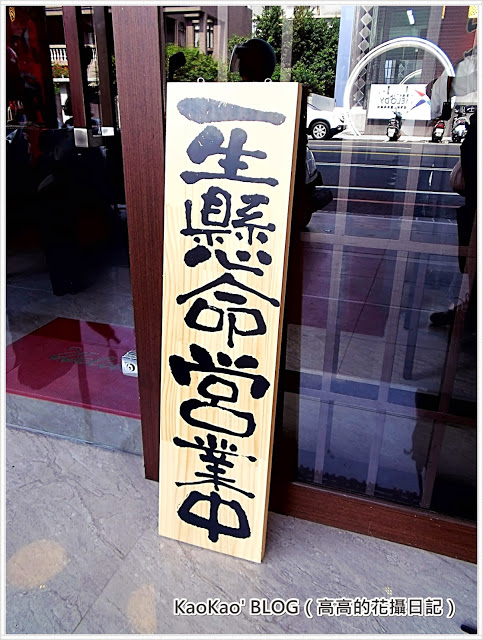 一生懸命営業中
MELODY
KaoKao' BLOG ( 高高的花攝日記 )